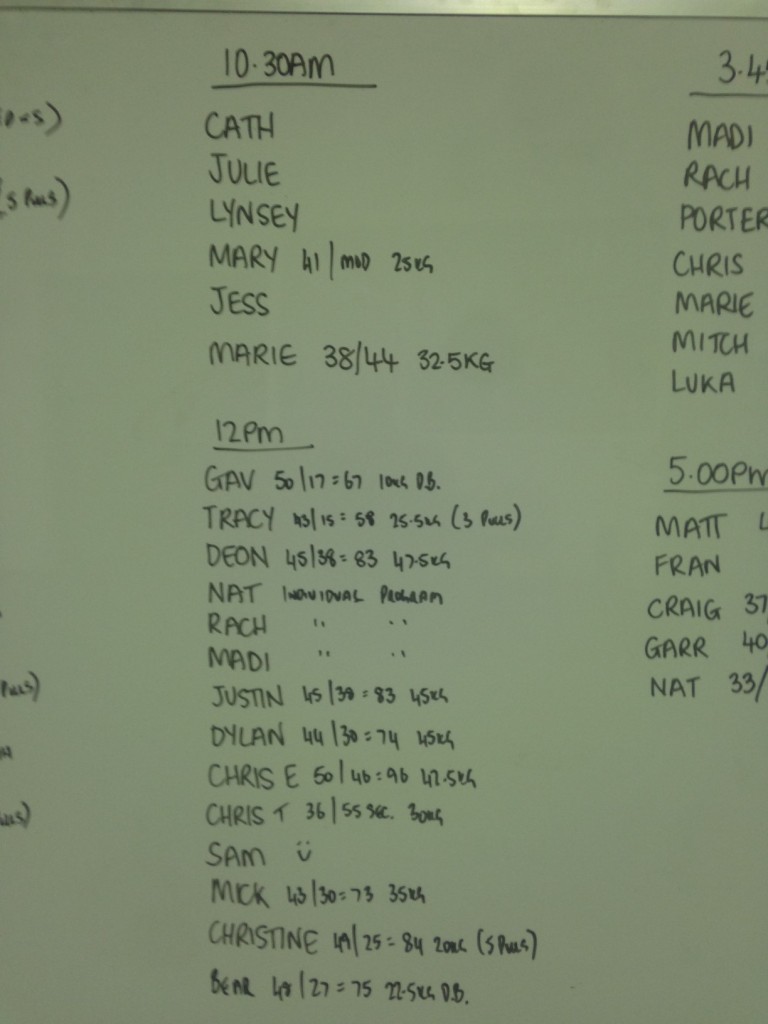 10.30AM
CATH
JULIE
LYNSEY
MARY 41/MOD 25KG
JESS
MARIE 38/44 32.5KG
12PM
GAV 50/17=67 10KG D.B.
TRACY 43/15=58 25.5KG (3 PULLS)
DEON 45/38=83 47.5KG
NAT INDIVIDUAL PROGRAM
RACH " "
MADI " "
JUSTIN 45/38=83 45KG
DYLAN 44/30=74 45KG
CHRIS E 50/46=96 47.5KG
CHRIS T 36/55 SEC. 30KG
SAM
MICK 43/30=73 35KG
CHRISTINE 49/25=84 20KG (5 PULLS)
BEAR 48/27=75 22.5KG D.B.
3.4
MADI
RACH
PORTER
CHRIS
MARIE
MITCH
LUKA
5.00PM
MATT
FRAN
CRAIG 37
GARR 40
NAT 33/
(5 PULLS)